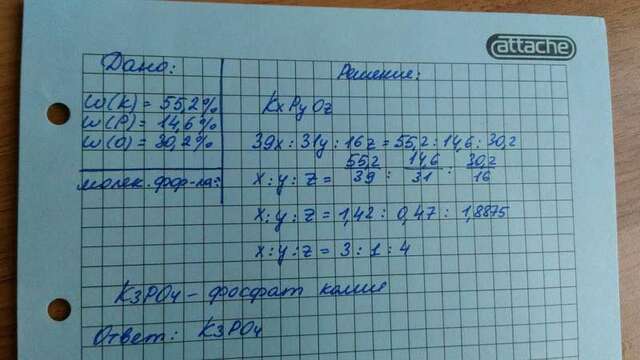 attache
Дано:
Решение:
ω(K) = 55,2%
ω(P) = 14,6%
ω(O) = 30,2%
молек. фор-ла:
KxPyOz
39x : 31y : 16z = 55,2 : 14,6 : 30,2
x : y : z = 55,2/39 : 14,6/31 : 30,2/16
x : y : z = 1,42 : 0,47 : 1,8875
x : y : z = 3 : 1 : 4
K3PO4 – фосфат калия
Ответ: K3PO4